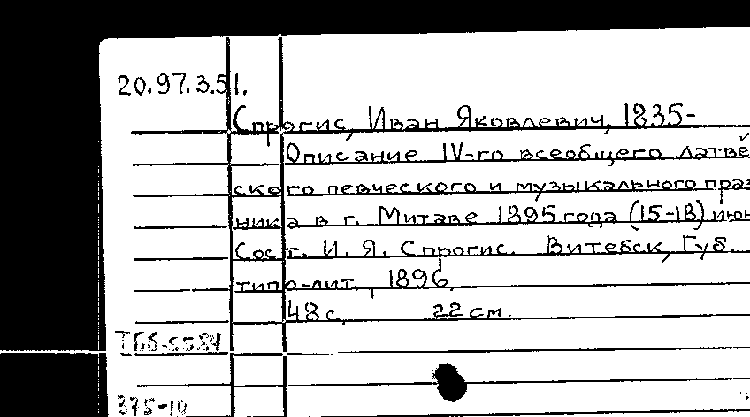 20.97.3.51.
Спрогис, Иван Яковлевич, 1835-
Описание IV-го всеобщего латвё
ского певческого и музыкального праз
ника в г. Митаве 1895 года (15-18) июн
Сост. И. Я. Спрогис. Витебск, Губ.
типо-лит., 1896.
48 с. 22 см.
375-10